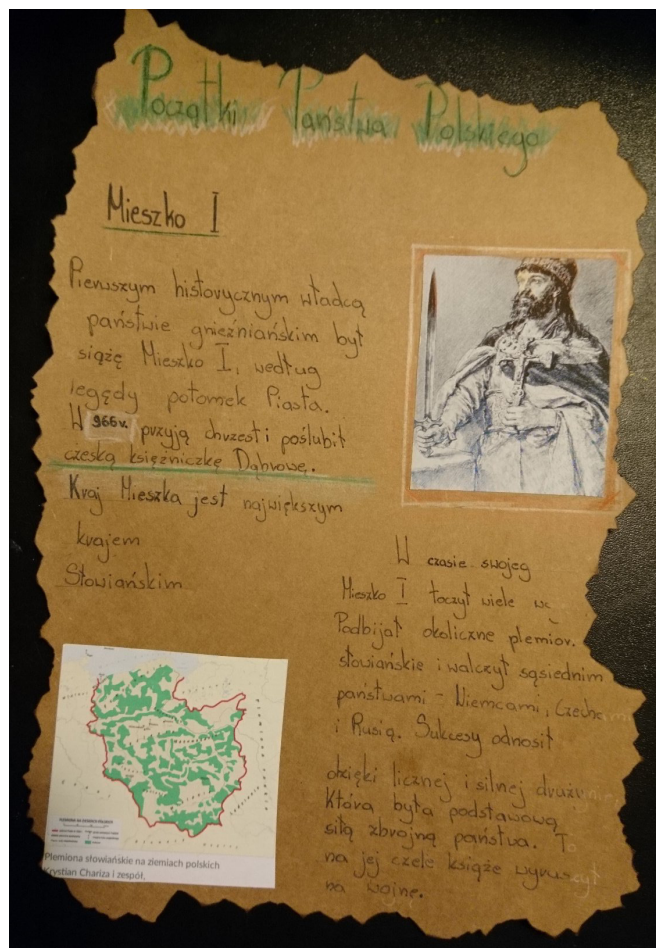 Początki Państwa Polskiego
Mieszko I
Pierwszym historycznym władcą
państwie gnieźniańskim był
siążę Mieszko I, według
legędy potomek Piasta.
W 966r. przyją chrzest i poślubił
czeską księżniczkę Dąbrowę.
Kraj Mieszka jest największym
krajem
Słowiańskim
W czasie swojeg
Mieszko I toczył wiele
Podbijał okoliczne plemion.
słowiańskie i walczył sąsiednim
państwami - Niemcami, Czechami
i Rusią. Sukcesy odnosił
dzięki licznej i silnej drużynie,
Która była podstawową
siłą zbrojną państwa. To
na jej czele książe wyruszył
na wojnę.
Plemiona słowiańskie na ziemiach polskich
Krystian Chariza i zespół,